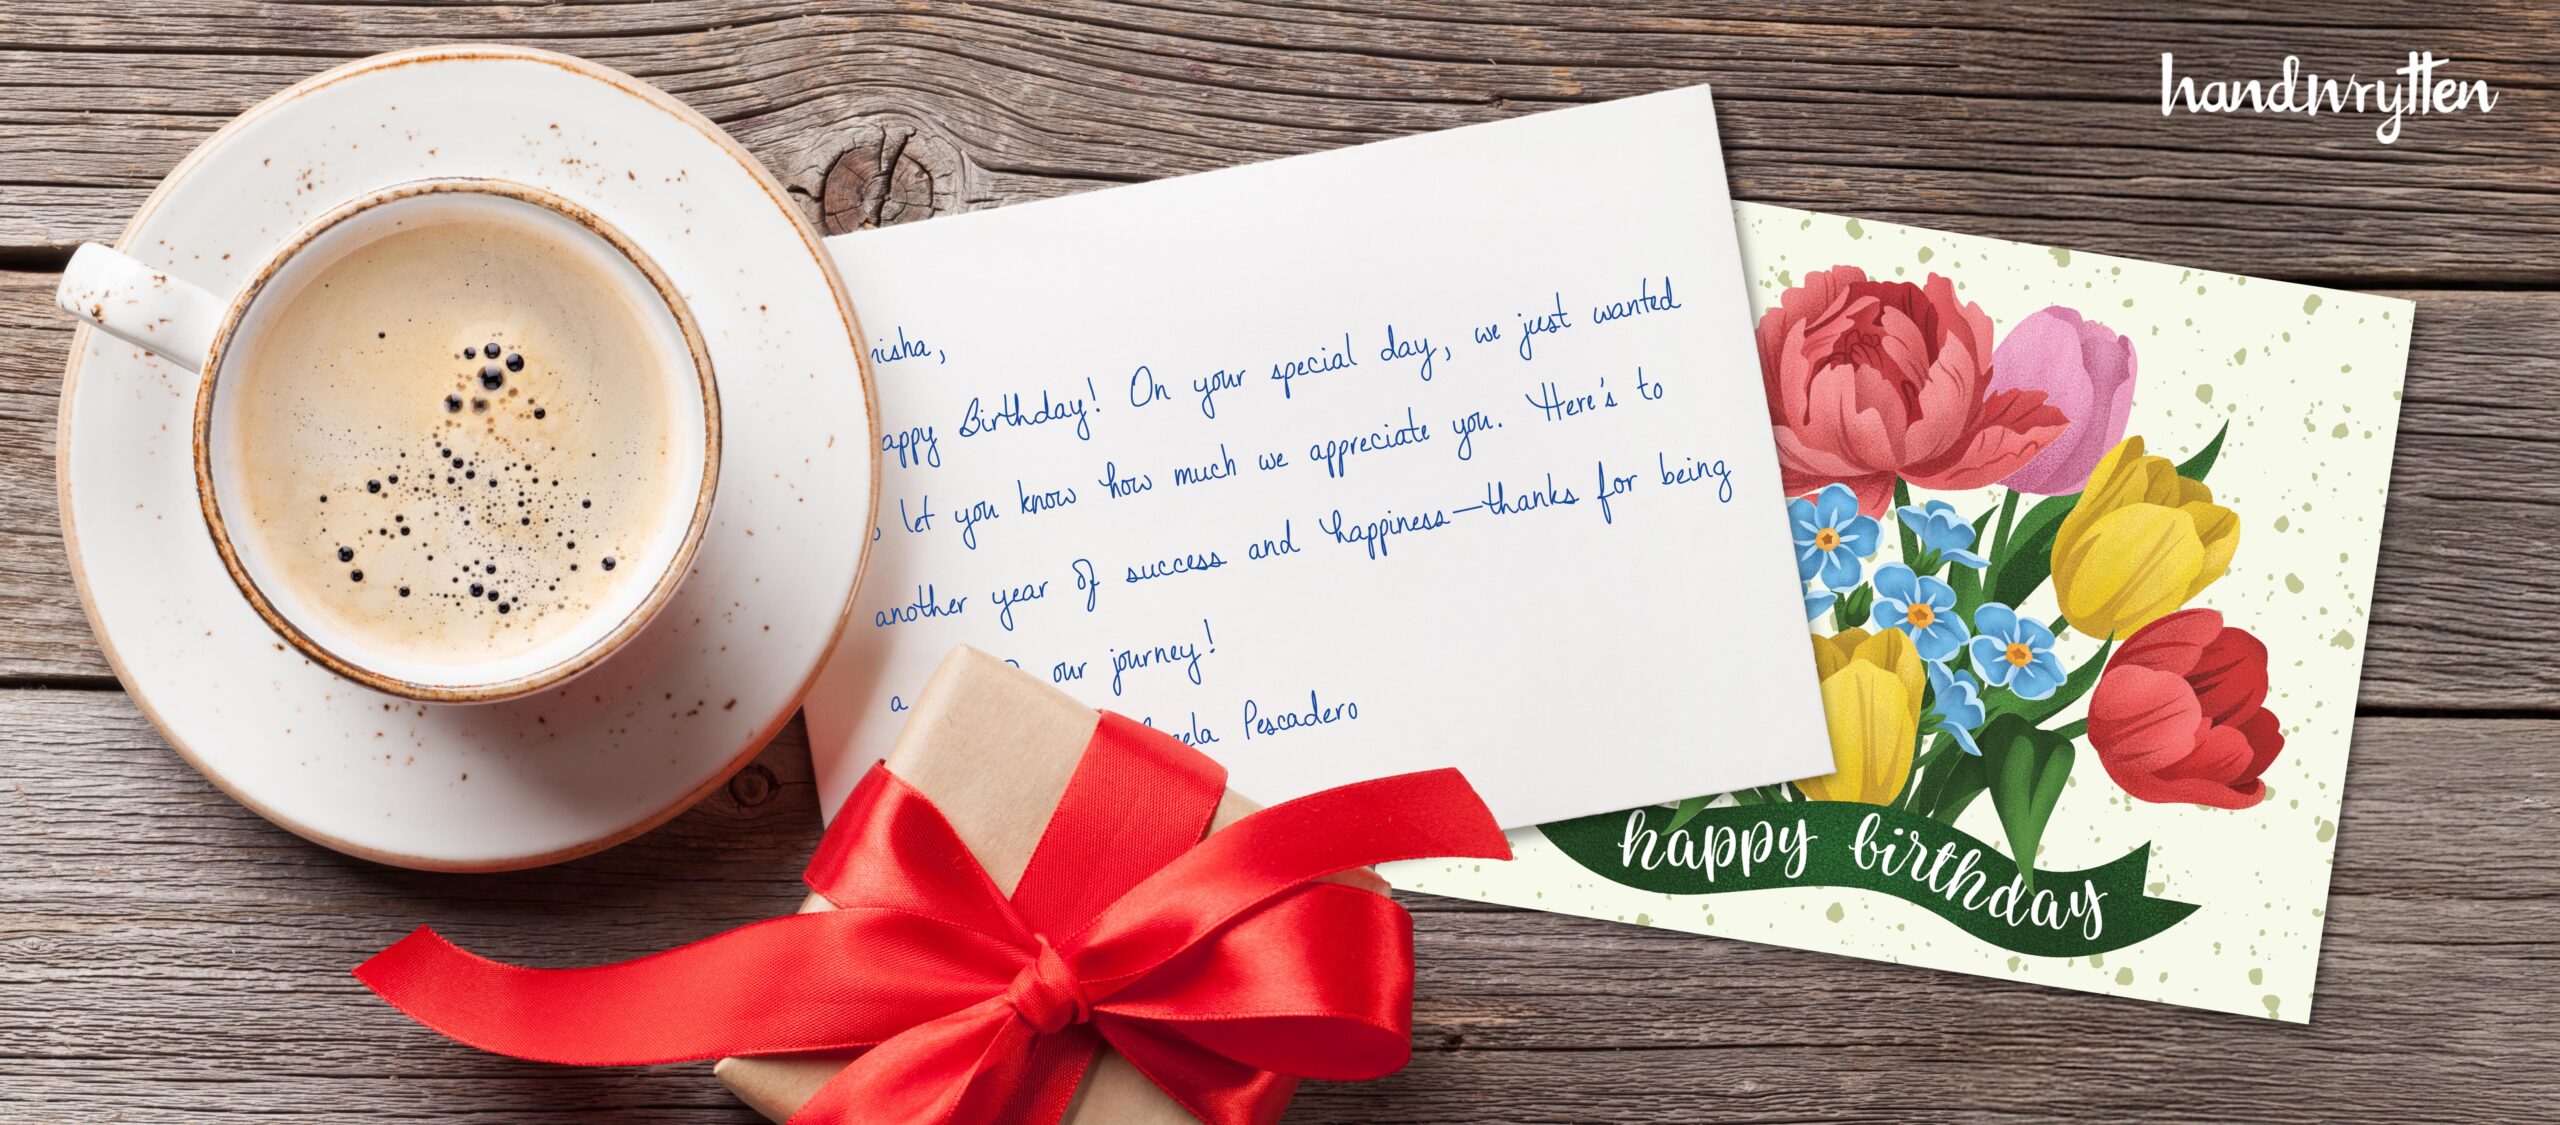 handwrytten
nisha,
appy Birthday! On your special day, we just wanted
, let you know how much we appreciate you. Here's to
another year of success and happiness—thanks for being
a our journey!
ela Pescadero
happy birthday